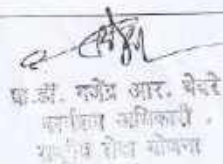 प्रा.डॉ. गजेंद्र आर. बेदरे
कार्यक्रम अधिकारी .
राष्ट्रीय सेवा योजना